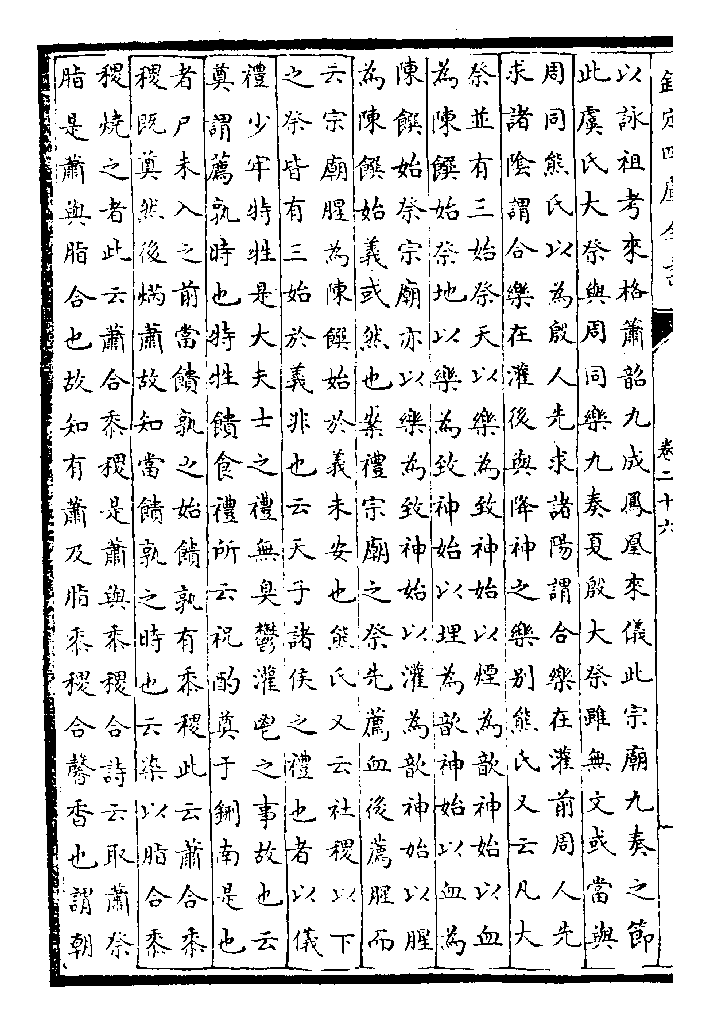 欽定四庫全書
卷二十六
以詠祖考來格簫韶九成鳳凰來儀此宗廟九奏之節
此虞氏大祭與周同樂九奏夏殷大祭雖無文或當與
周同熊氏以為殷人先求諸陽謂合樂在灌前周人先
求諸陰謂合樂在灌後與降神之樂别熊氏又云凡大
祭並有三始祭天以樂為致神始以煙為歆神始以血
為陳饌始祭地以樂為致神始以埋為歆神始以血為
陳饌始祭宗廟亦以樂為致神始以灌為歆神始以腥
為陳饌始義或然也案禮宗廟之祭先薦血後薦腥而
云宗廟腥為陳饌始於義未安也熊氏又云社稷以下
之祭皆有三始於義非也云天子諸侯之禮也者以儀
禮少牢特牲是大夫士之禮無臭鬱灌鬯之事故也云
奠謂薦孰時也特牲饋食禮所云祝酌奠于鉶南是也
者尸未入之前當饋孰之始饋孰有黍稷此云蕭合黍
稷既奠然後焫蕭故知當饋孰之時也云染以脂合黍
稷燒之者此云蕭合黍稷是蕭與黍稷合詩云取蕭祭
脂是蕭與脂合也故知有蕭及脂黍稷合馨香也謂朝